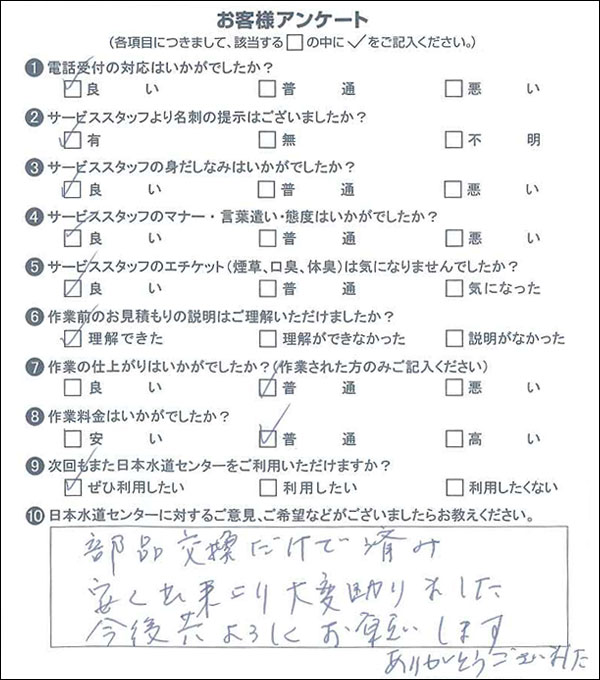 お客様アンケート
(各項目につきまして、該当する□の中に✓をご記入ください。)
❶電話受付の対応はいかがでしたか?
☑良い □普通 □悪い
❷サービススタッフより名刺の提示はございましたか?
☑有 □無 □不明
❸サービススタッフの身だしなみはいかがでしたか?
☑良い □普通 □悪い
❹サービススタッフのマナー・言葉遣い・態度はいかがでしたか?
☑良い □普通 □悪い
❺サービススタッフのエチケット(煙草、口臭、体臭)は気になりませんでしたか?
☑良い □普通 □気になった
❻作業前のお見積もりの説明はご理解いただけましたか?
☑理解できた □理解ができなかった □説明がなかった
❼作業の仕上がりはいかがでしたか?(作業された方のみご記入ください)
□良い ☑普通 □悪い
❽作業料金はいかがでしたか?
□安い ☑普通 □高い
❾次回もまた日本水道センターをご利用いただけますか?
☑ぜひ利用したい □利用したい □利用したくない
❿日本水道センターに対するご意見、ご希望などがございましたらお教えください。
部品交換だけで済み
安く出来 大変助かりました
今後共よろしくお願いします
ありがとうございました